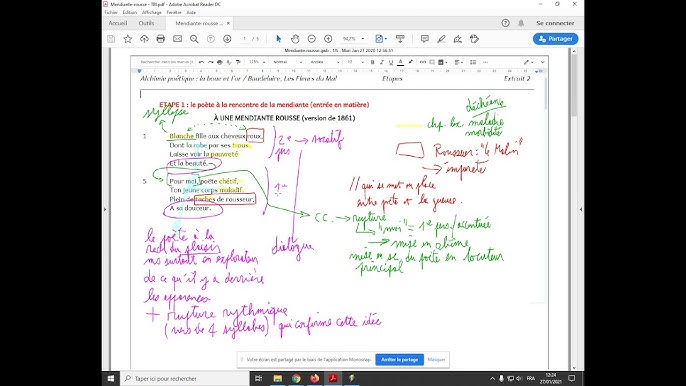 Mendiante-rousse - TBI.pdf - Adobe Acrobat Reader DC
Fichier Edition Affichage Fenêtre Aide
Accueil Outils Mendiante-rousse - ... ×
Se connecter
1 / 5
94,2%
Partager
Mendiante-rousse.gwb - 1/5 - Mon Jan 27 2020 12:56:31
Rechercher dans le document
Alchimie poétique : la boue et l'or / Baudelaire, Les Fleurs du Mal Etapes Extrait 2
ETAPE 1 : le poète à la rencontre de la mendiante (entrée en matière)
À UNE MENDIANTE ROUSSE (version de 1861)
syllepse
1 Blanche fille aux cheveux roux,
Dont la robe par ses trous
Laisse voir la pauvreté
Et la beauté,
5 Pour moi, poète chétif,
Ton jeune corps maladif,
Plein de taches de rousseur,
A sa douceur.
2e pers
→ vocatif
1e
dialogue
déchéance
chp. lex. maladie
morbidité
Rousseur : "le Malin"
→ impureté
// qui se met en place
entre poète et la gueuse.
C C. → rupture
"moi" = 1e pers / accentuée
→ mise en abîme
mise en sc. du poète en locuteur
principal
le poète à la
rech du plaisir
ms surtout en exploration
de ce qu'il y a derrière
les apparences
+ rupture rythmique
(vers de 4 syllabes) qui confirme cette idée
Votre écran est partagé par le biais de l'application Monosnap.
Arrêter le partage
Masquer
Taper ici pour rechercher
FRA
12:24
27/01/2021